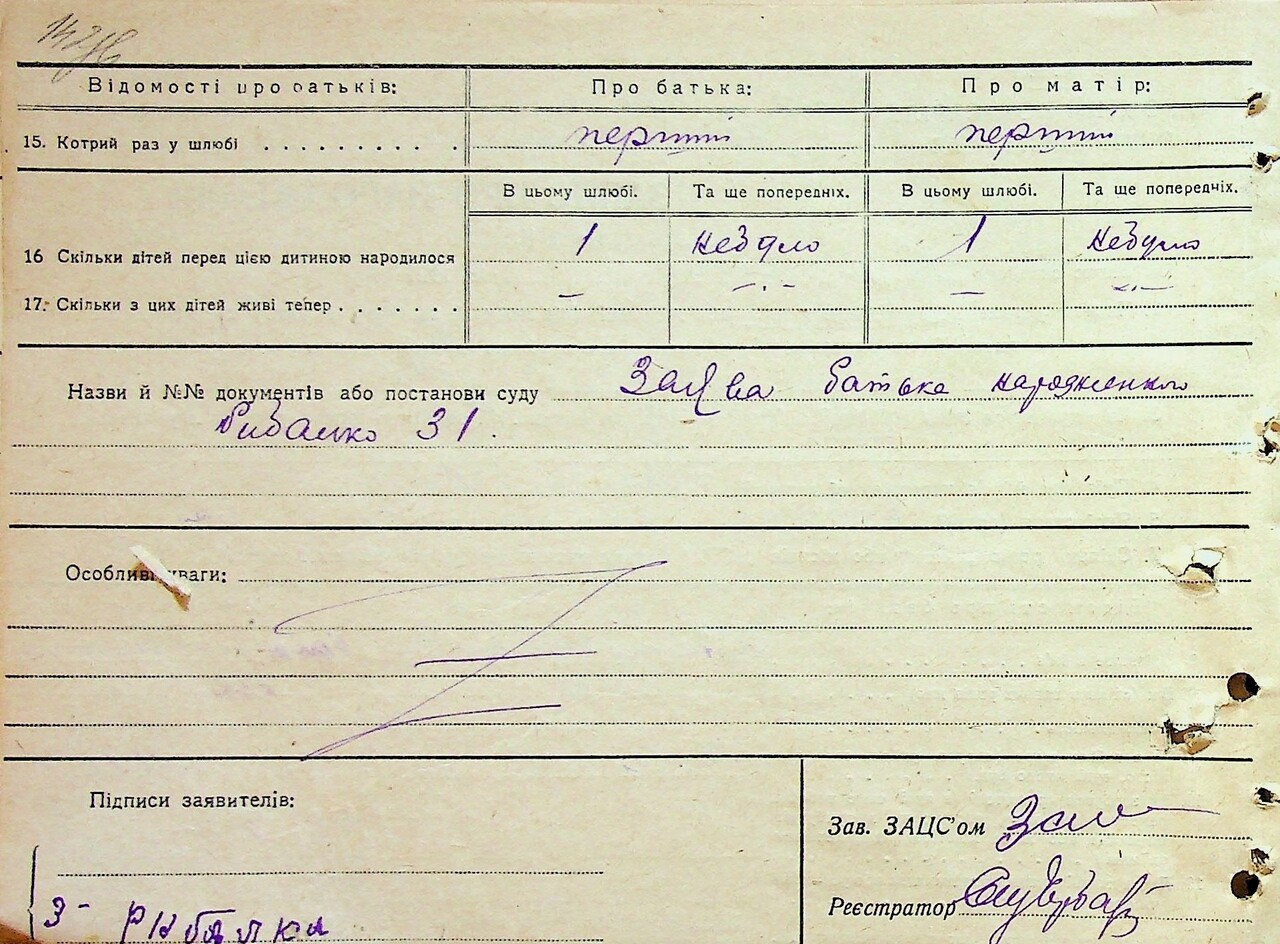 Відомості про батьків: Про батька: Про матір:
15. Котрий раз у шлюбі . . . . . . . . . . перший перший
В цьому шлюбі. Та ще попередніх. В цьому шлюбі. Та ще попередніх.
16 Скільки дітей перед цією дитиною народилося 1 небуло 1 небуло
17. Скільки з цих дітей живі тепер . . . . . . . — —·— — —·—
Назви й №№ документів або постанови суду Заява батька
31.
Особливі уваги:
Підписи заявителів:
Зав. ЗАЦС'ом
З- РИБАЛКА
Реєстратор